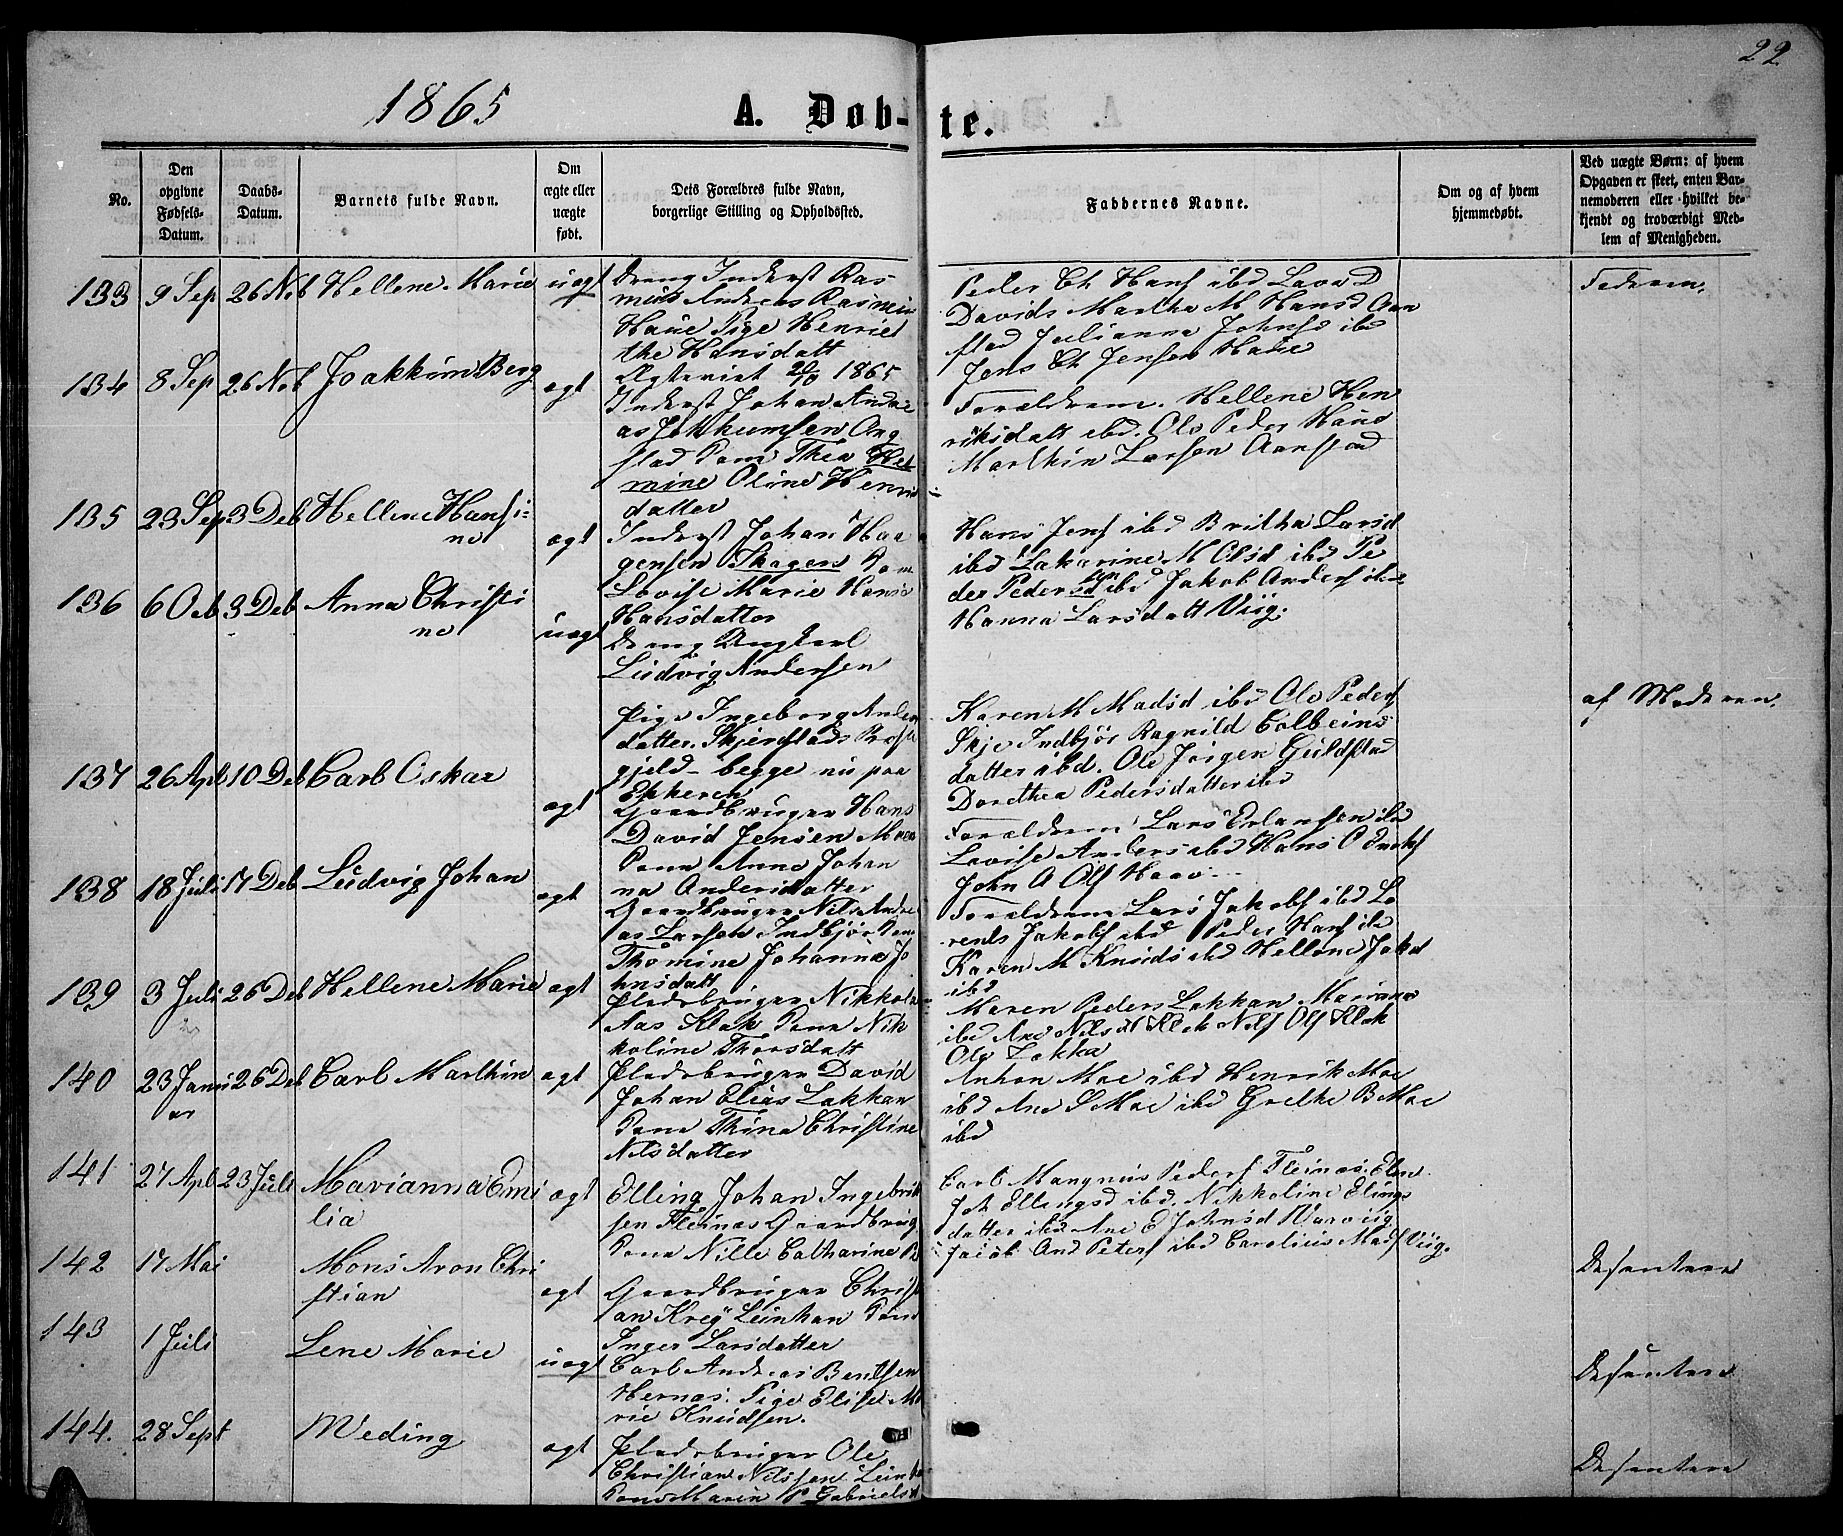 22
1865
A. Døb-te.
No.
Den opgivne Fødsels-Datum.
Daabs-Datum.
Barnets fulde Navn.
Om ægte eller uægte født.
Dets Forældres fulde Navn, borgerlige Stilling og Opholdssted.
Faddernes Navne.
Om og af hvem hjemmedøbt.
Ved uægte Børn: af hvem Opgaven er skeet, enten Barnemoderen eller hvilket bekjendt og troværdigt Medlem af Menigheden.
133 9 Sep 26 Nob Hellene Marie uægt
Dreng Inderst Ras
mus Andreas Rasmus
Haue Pige Henriet
the Hansdatt
Peder Ch Hans ibd Lava D
Davids Martha M Hansd Aan
stad Julianna Johnsd ibd
Jens Ch Jensen Haue
134 8 Sep 26 Nob Joakkim Berg ægt
Ægteviet 1865
Inderst Johan Andre
as Jokkumsen Ong
stad Kone Thea Hel
mine Oline Henriks
datter
Forældrene. Hellene Hen
riksdatt ibd. Ole Peder Hans
Marthin Larsen Aanstad
135 23 Sep 3 Deb Hellene Hansi-
ne ægt
Inderst Johan Haa
gensen Skagen Kone
Lovise Marie Hans
Hansdatter
Hans Jens ibd Britha Larsd
ibd Lakarine M Olsd ibd Pe
der Pedersen ibd Jakob Anders ibd
Hanna Larsdatt Viig.
136 6 Ocb 3 Deb Anna Christi
ne uægt
Dreng Ungkarl
Ludvig Andersen
Pige Ingeborg Anders
datter. Skjerstads Præste
gjeld - begge nu paa
Karen M Madsd ibd Ole Peders
Skje Indbjør Ragnild Colbeins
datter ibd. Ole Jørgen Guldstad
Dorethea Pedersdatter ibd
af Moderen.
137 26 Apl 10 Deb Carl Oskar ægt
Gaardbruger Hans
David Jensen
Kone Anne Johan
na Andersdatter
Forældrene Lars Erlansen ibd
Lovise Anders ibd Hans O
John A Ols Haav
138 18 Juli 17 Deb Ludvig Johan ægt
Gaardbruger Nils Andre
as Larsen Indbjør Kone
Thomine Johanna Jo
hnsdatt
Forældrene Lars Jakobs ibd Lo
rents Jakobs ibd Peder Hans ibd
Karen M Knuds ibd Hellene Jakob
ibd
139 3 Juli 26 Deb Hellene Marie ægt
Pladsbruger Nikkola
Aas Klak Kone Nik
koline Thorsdatt
Maren Peders Lakkan Mariane
ibd Ane Nilsd Klak Nils Ols Klak
Ole Lakka
140 23 Janu
ar 26 Deb Carl Marthin ægt
Pladsbruger David
Johan Elias Lakkan
Kone Thina Christine
Nilsdatter
Anton Moe ibd Henrik Moe
ibd Ane S Moe ibd Grethe B Moe
ibd
141 27 Apl 23 Juli Marianna Emi
lia ægt
Elling Johan Ingebrik
sen Fleinas Gaardbrug
Kone Nille Catharine
Carl Mangnus Peders Fleinas. Elen
Joh Ellingsd ibd. Nikkoline Elings
datter ibd Ane E Johnsd Varviig
Jacob And Peters ibd Carolius Mads Viig.
142 17 Mai Mons Aron Chri
stian ægt
Gaardbruger Christ
an Krey Leinhan Kone
Inger Larsdatter
Desentere
143 1 Juli Lene Marie uægt
Carl Andreas Bentsen
Hernas. Pige Elise Ma
rie Knudsen.
Desentere
144. 28 Sept Meding ægt
Pladsbruger Ole
Christian Nilssen Lein
Kone Maren P Gabrielsd
Desentere